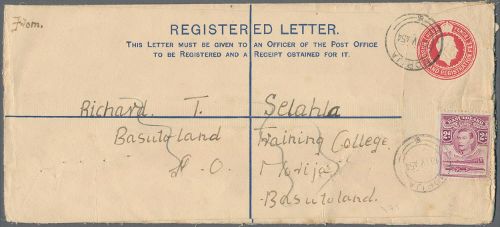 From.
REGISTERED LETTER.
THIS LETTER MUST BE GIVEN TO AN OFFICER OF THE POST OFFICE
TO BE REGISTERED AND A RECEIPT OBTAINED FOR IT.
Richard T. Selahla
Basutoland Training College
P.O. Morija
Basutoland.
MORIJA
2d 2d
MORIJA